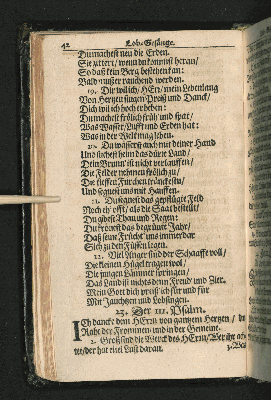 42 Lob-Gesänge.
Du machest neu die Erden.
Sie zittert/ wenn du kommst heran/
So daß kein Berg bestehen kan:
Bald müsser rauchend werden.
19. Dir will ich/ HErr/ mein Lebenlang
Von Hertzen singen Preiß und Danck/
Dich wil ich hoch erheben:
Du machest frölich früh und spat/
Was Wasser/ Lufft und Erden hat:
Was in der Welt mag leben.
Du wässerst auch mit deiner Hand
Und suchest heim das dürre Land/
Dein Brunn ist nicht verlauffen/
Die Felder nehmen frölich zu/
Die tieffen Furchen tränckest du/
Und segnest uns mit
11. Du segnest das gepflügte Feld
Noch eh' offt/ als die Saat bestellt/
Du giebst Thau und Regen:
Du krönest das begraute Jahr/
Daß seine Frücht' uns immerdar
Sich zu den Füssen legen.
12. Viel Anger sind der Schaaffe voll/
Die kleinen Hügel tragen wol/
Die jungen Lämmer springen/
Das Land ist nichts denn Freud und Zier.
Mein Gott dich preiß ich für und für
Mit Jauchzen und Lobsingen.
23. Der III. Psalm.
Ich dancke dem HErrn von gantzem Hertzen/ im
Raht der Frommen und in der Gemeine.
2. Groß sind die Werck des HErrn/ Wer ihr ach-
tet/ der hat eine Lust daran.